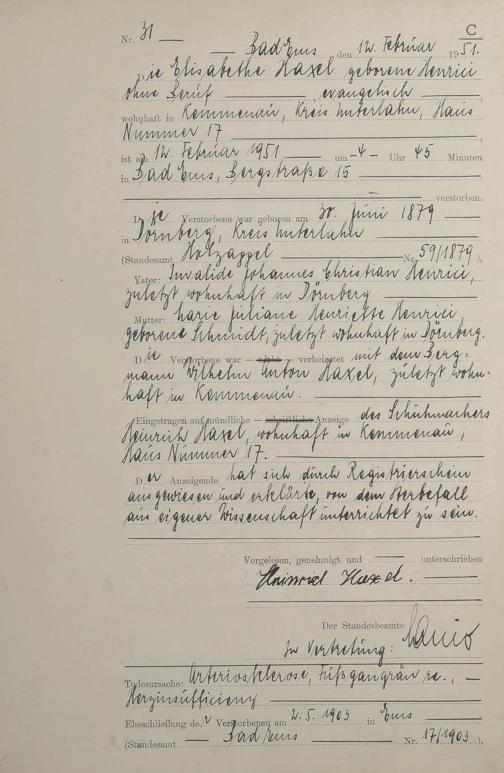 C
Nr. 31
Bad Ems, den 12. Februar 1951.
Die Elisabethe Haxel geborene Henrici
ohne Beruf, evangelisch,
wohnhaft in Kemmenau, Kreis Unterlahn, Haus
Nummer 17
ist am 12. Februar 1951 um 4 Uhr 45 Minuten
in Bad Ems, Bergstraße 15
verstorben.
Die Verstorbene war geboren am 30. Juni 1879
in Dörnberg, Kreis Unterlahn
(Standesamt Holzappel Nr. 59/1879).
Vater: Invalide Johannes Christian Henrici,
zuletzt wohnhaft in Dörnberg
Mutter: Marie Juliane Henriette Henrici,
geborene Schmidt, zuletzt wohnhaft in Dörnberg.
Die Verstorbene war — nicht — verheiratet mit dem Berg-
mann Wilhelm Anton Haxel, zuletzt wohn-
haft in Kemmenau.
Eingetragen auf mündliche — schriftliche Anzeige des Schuhmachers
Heinrich Haxel, wohnhaft in Kemmenau,
Haus Nummer 17.
Der Anzeigende hat sich durch Registrierschein
ausgewiesen und erklärte, von dem Sterbefall
aus eigener Wissenschaft unterrichtet zu sein.
Vorgelesen, genehmigt und unterschrieben
Heinrich Haxel.
Der Standesbeamte
In Vertretung:
Todesursache: Arteriosklerose, Fußgangrän re.,
Herzinsufficienz
Eheschließung der Verstorbenen am 2.5.1903 in Ems
(Standesamt Bad Ems Nr. 17/1903).